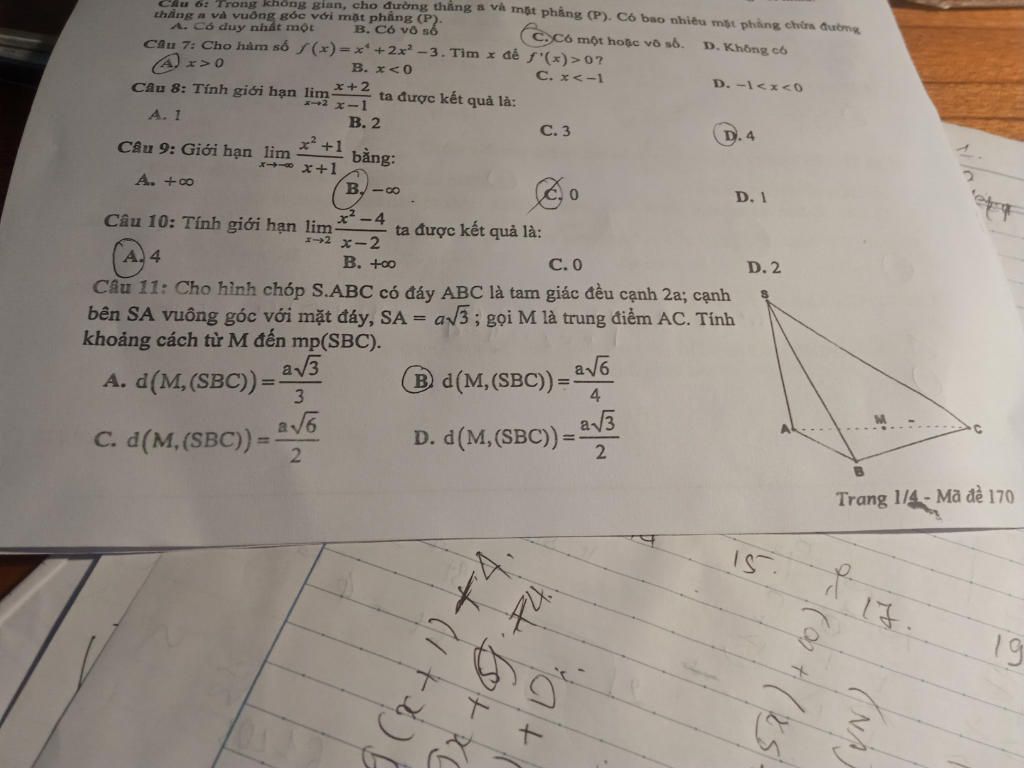 Câu 6: Trong không gian, cho đường thẳng a và mặt phẳng (P). Có bao nhiêu mặt phẳng chứa đường
thẳng a và vuông góc với mặt phẳng (P).
A. Có duy nhất một B. Có vô số C. Có một hoặc vô số. D. Không có
Câu 7: Cho hàm số f(x) = x⁴ + 2x² − 3. Tìm x để f'(x) > 0?
A. x > 0 B. x < 0 C. x < −1 D. −1 < x < 0
Câu 8: Tính giới hạn lim x→2 (x + 2)/(x − 1) ta được kết quả là:
A. 1 B. 2 C. 3 D. 4
Câu 9: Giới hạn lim x→−∞ (x² + 1)/(x + 1) bằng:
A. +∞ B. −∞ C. 0 D. 1
Câu 10: Tính giới hạn lim x→2 (x² − 4)/(x − 2) ta được kết quả là:
A. 4 B. +∞ C. 0 D. 2
Câu 11: Cho hình chóp S.ABC có đáy ABC là tam giác đều cạnh 2a; cạnh
bên SA vuông góc với mặt đáy, SA = a√3 ; gọi M là trung điểm AC. Tính
khoảng cách từ M đến mp(SBC).
A. d(M,(SBC)) = a√3/3 B. d(M,(SBC)) = a√6/4
C. d(M,(SBC)) = a√6/2 D. d(M,(SBC)) = a√3/2
S
A M C
B
Trang 1/4 - Mã đề 170
15.
17.
19